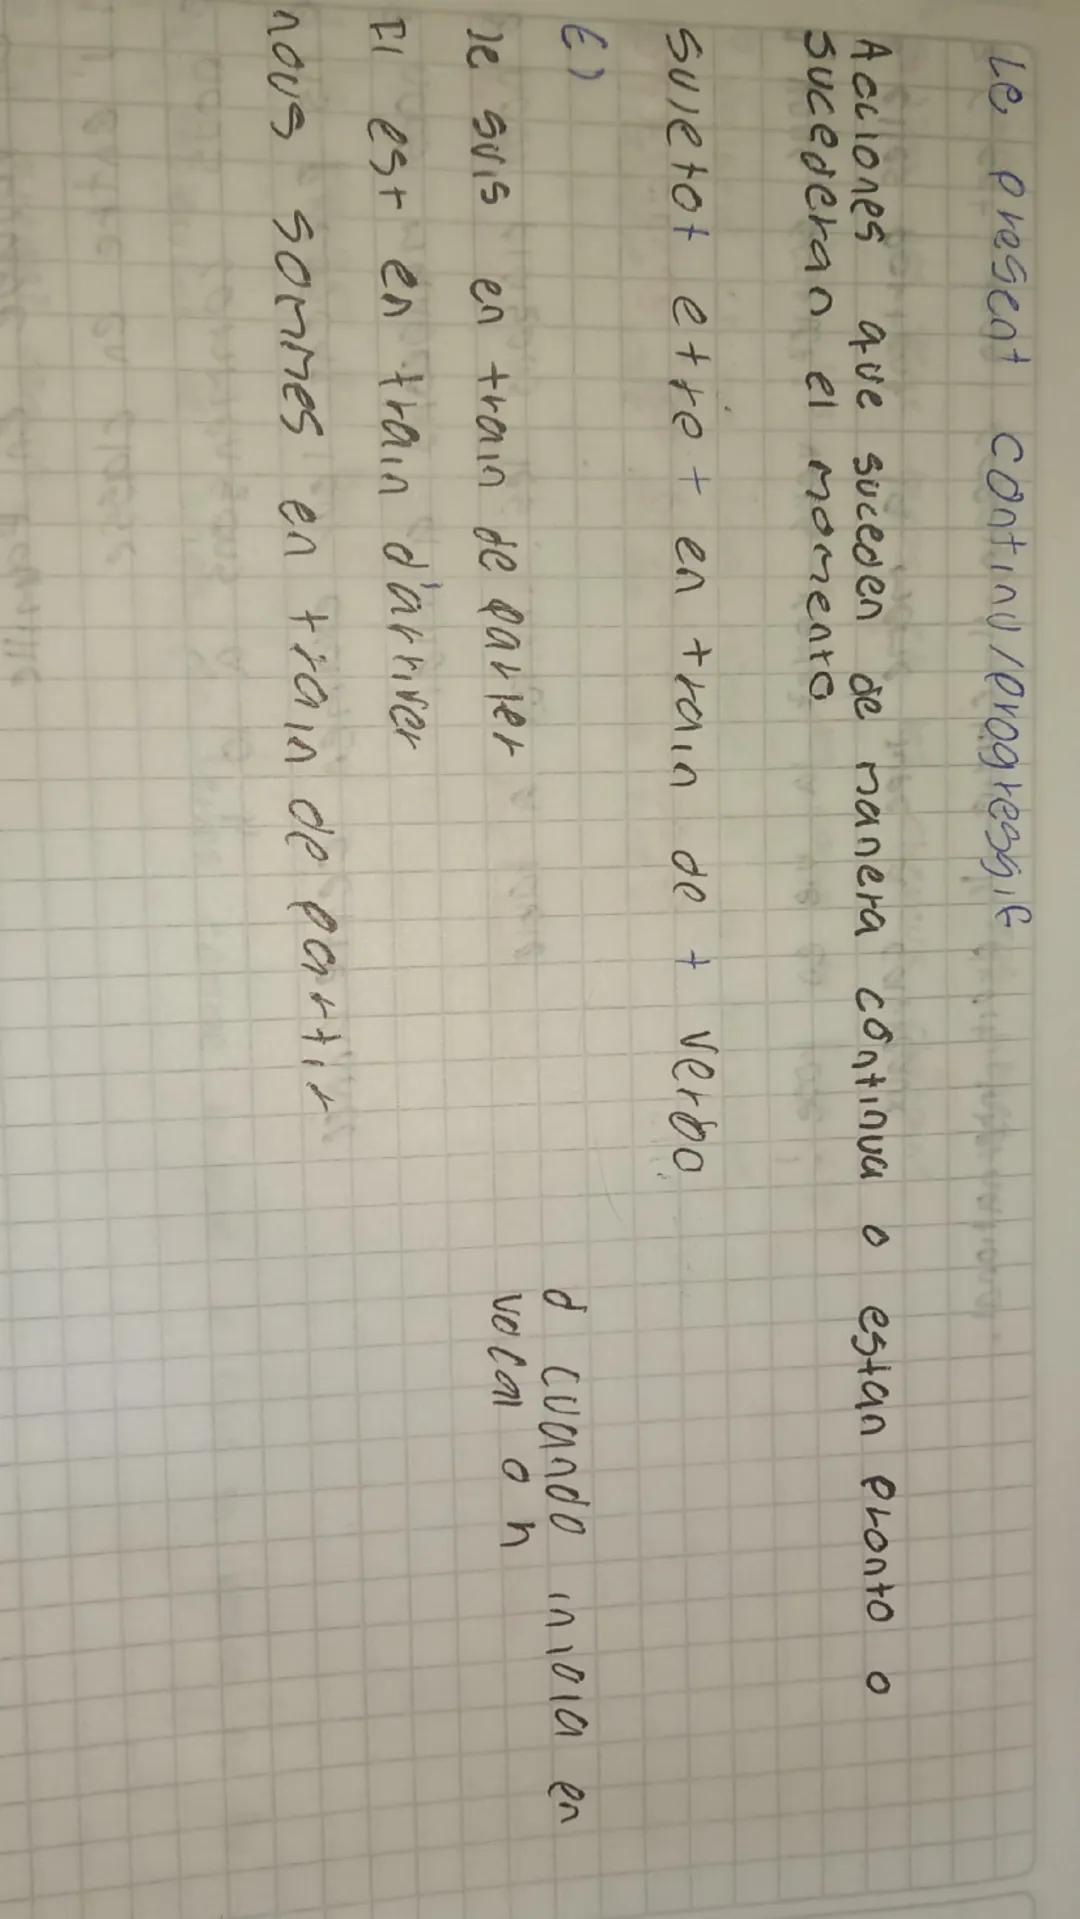 Le present continu/progressif
Acciones que suceden de manera continua o estan pronto o
sucederan el momento
sujetot etre + en train de + verbo
Ej
d cuando inicia en
vocal o h
Je suis en train de parler
Il est en train d'arriver
nous sommes en train de partir